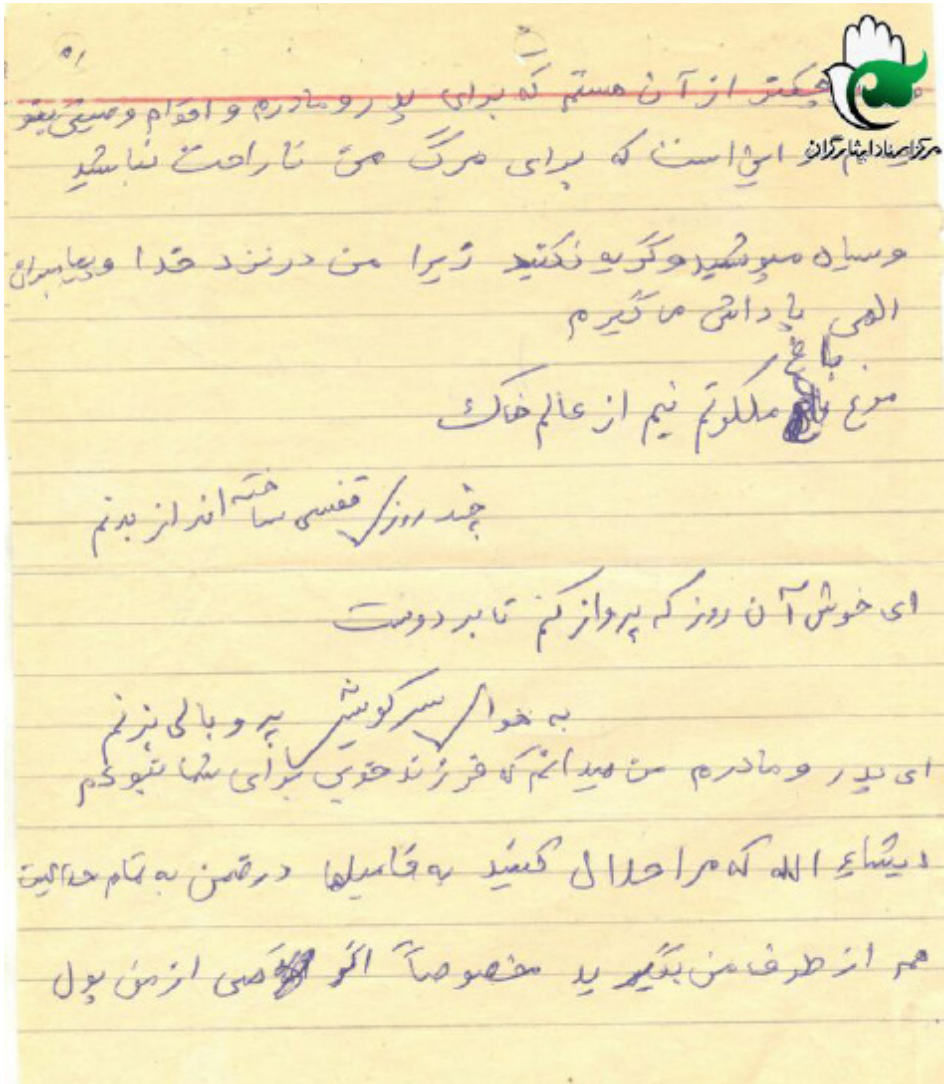 کوچکتر از آن هستم که برای پدر و مادرم و اقوام وصیتی بنو
این است که برای مرگ من ناراحت نباشید
مرکز اسناد ایثارگران
و سیاه مپوشید و گریه نکنید زیرا من در نزد خدا و پیامبران
الهی پاداش می گیرم
باغ
مرغ ملکوتم نیم از عالم خاک
چند روزی قفسی ساخته اند از بدنم
ای خوش آن روز که پرواز کنم تا بر دوست
به هوای سر کویش پر و بالی بزنم
ای پدر و مادرم من میدانم که فرزند خوبی برای شما نبودم
انشاء الله که مرا حلال کنید به فامیلها در ضمن به تمام
هم از طرف من بگیرید مخصوصاً اگر کسی از من پول